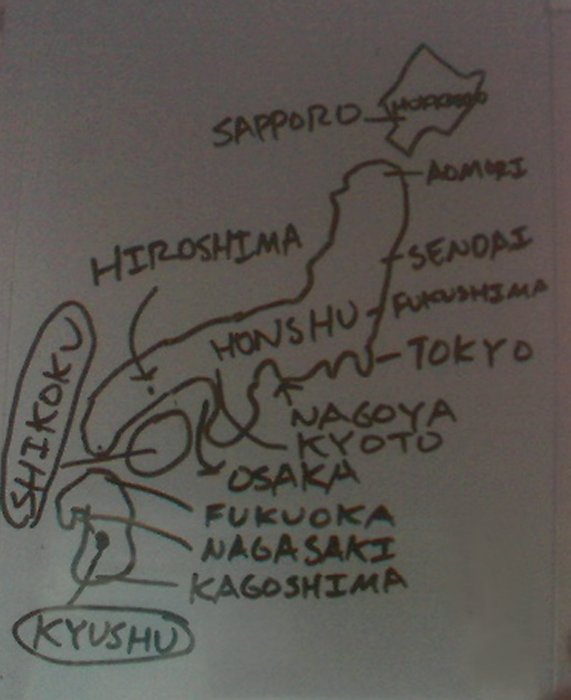 HOKKAIDO
SAPPORO
AOMORI
HIROSHIMA
SENDAI
FUKUSHIMA
HONSHU
TOKYO
SHIKOKU
NAGOYA
KYOTO
OSAKA
FUKUOKA
NAGASAKI
KAGOSHIMA
KYUSHU